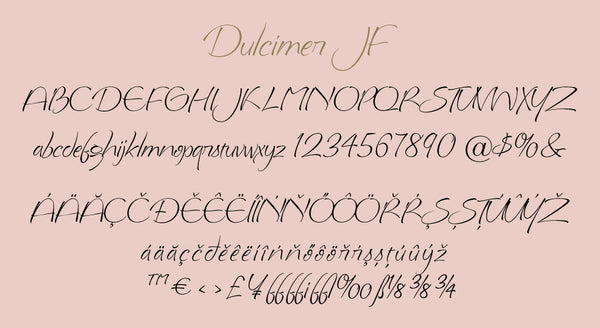 Dulcimer JF
ABCDEFGHIJKLMNOPQRSTUVWXYZ
abcdefghijklmnopqrstuvwxyz 1234567890 @$%&
ÁÄĂÇČĐĚÊËÍÎŃŇŐÔÖŘŔŞȘŢÚÛÝŽ
áäăçčđěêëíîńňőôöřŕşșţúûýž
™€‹›£¥ ‰ß⅛⅜¾